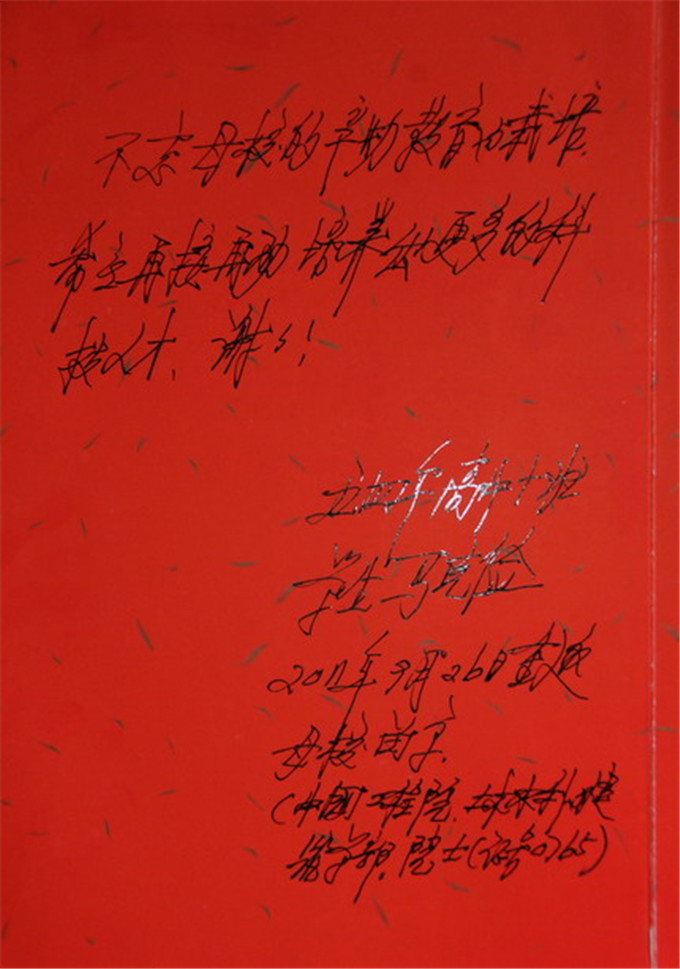 不忘母校的辛勤教育和栽培,
希望再接再励 培养出更多的科
技人才, 谢谢!
五四年高中十班
学生 马克俭
2011年9月26日重返
母校留言
(中国工程院, 土木水利建
筑学部, 院士(证号0765)